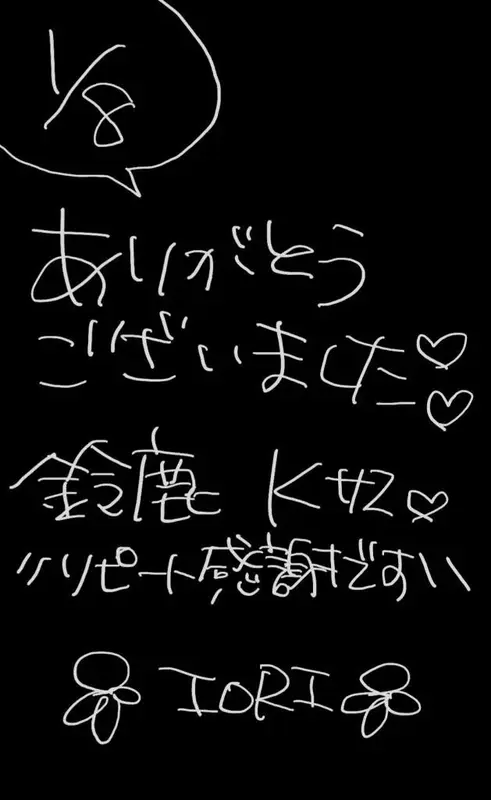 1/8
ありがとう
ございました♡♡
鈴鹿 Kサマ♡
〃リピート感謝です〃
IORI